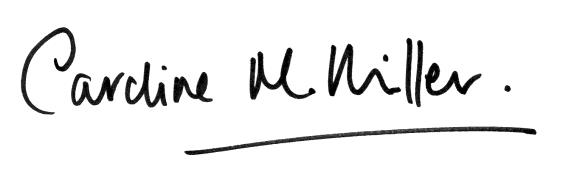 Caroline M. Miller.